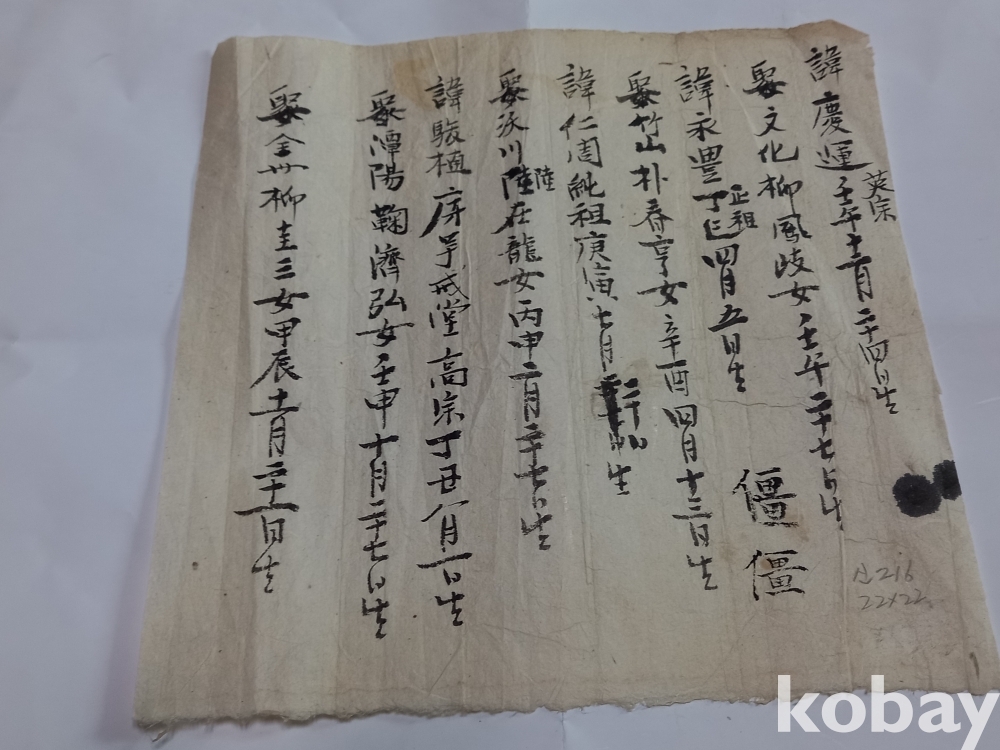 諱慶運英宗壬午十二月二十四日生
娶文化柳鳳岐女壬午二十七日生
諱永豊正祖丁巳四月五日生
僵僵
娶竹山朴春亨女辛酉四月十三日生
諱仁周純祖庚寅七月二十日生
娶沃川陸陸在龍女丙申二月二十七日生
諱駿植房号戒堂高宗丁丑八月一日生
娶潭陽鞠濟弘女壬申十月二十七日生
娶全州柳圭三女甲辰十一月二十一日生
산216
22×22
kobay